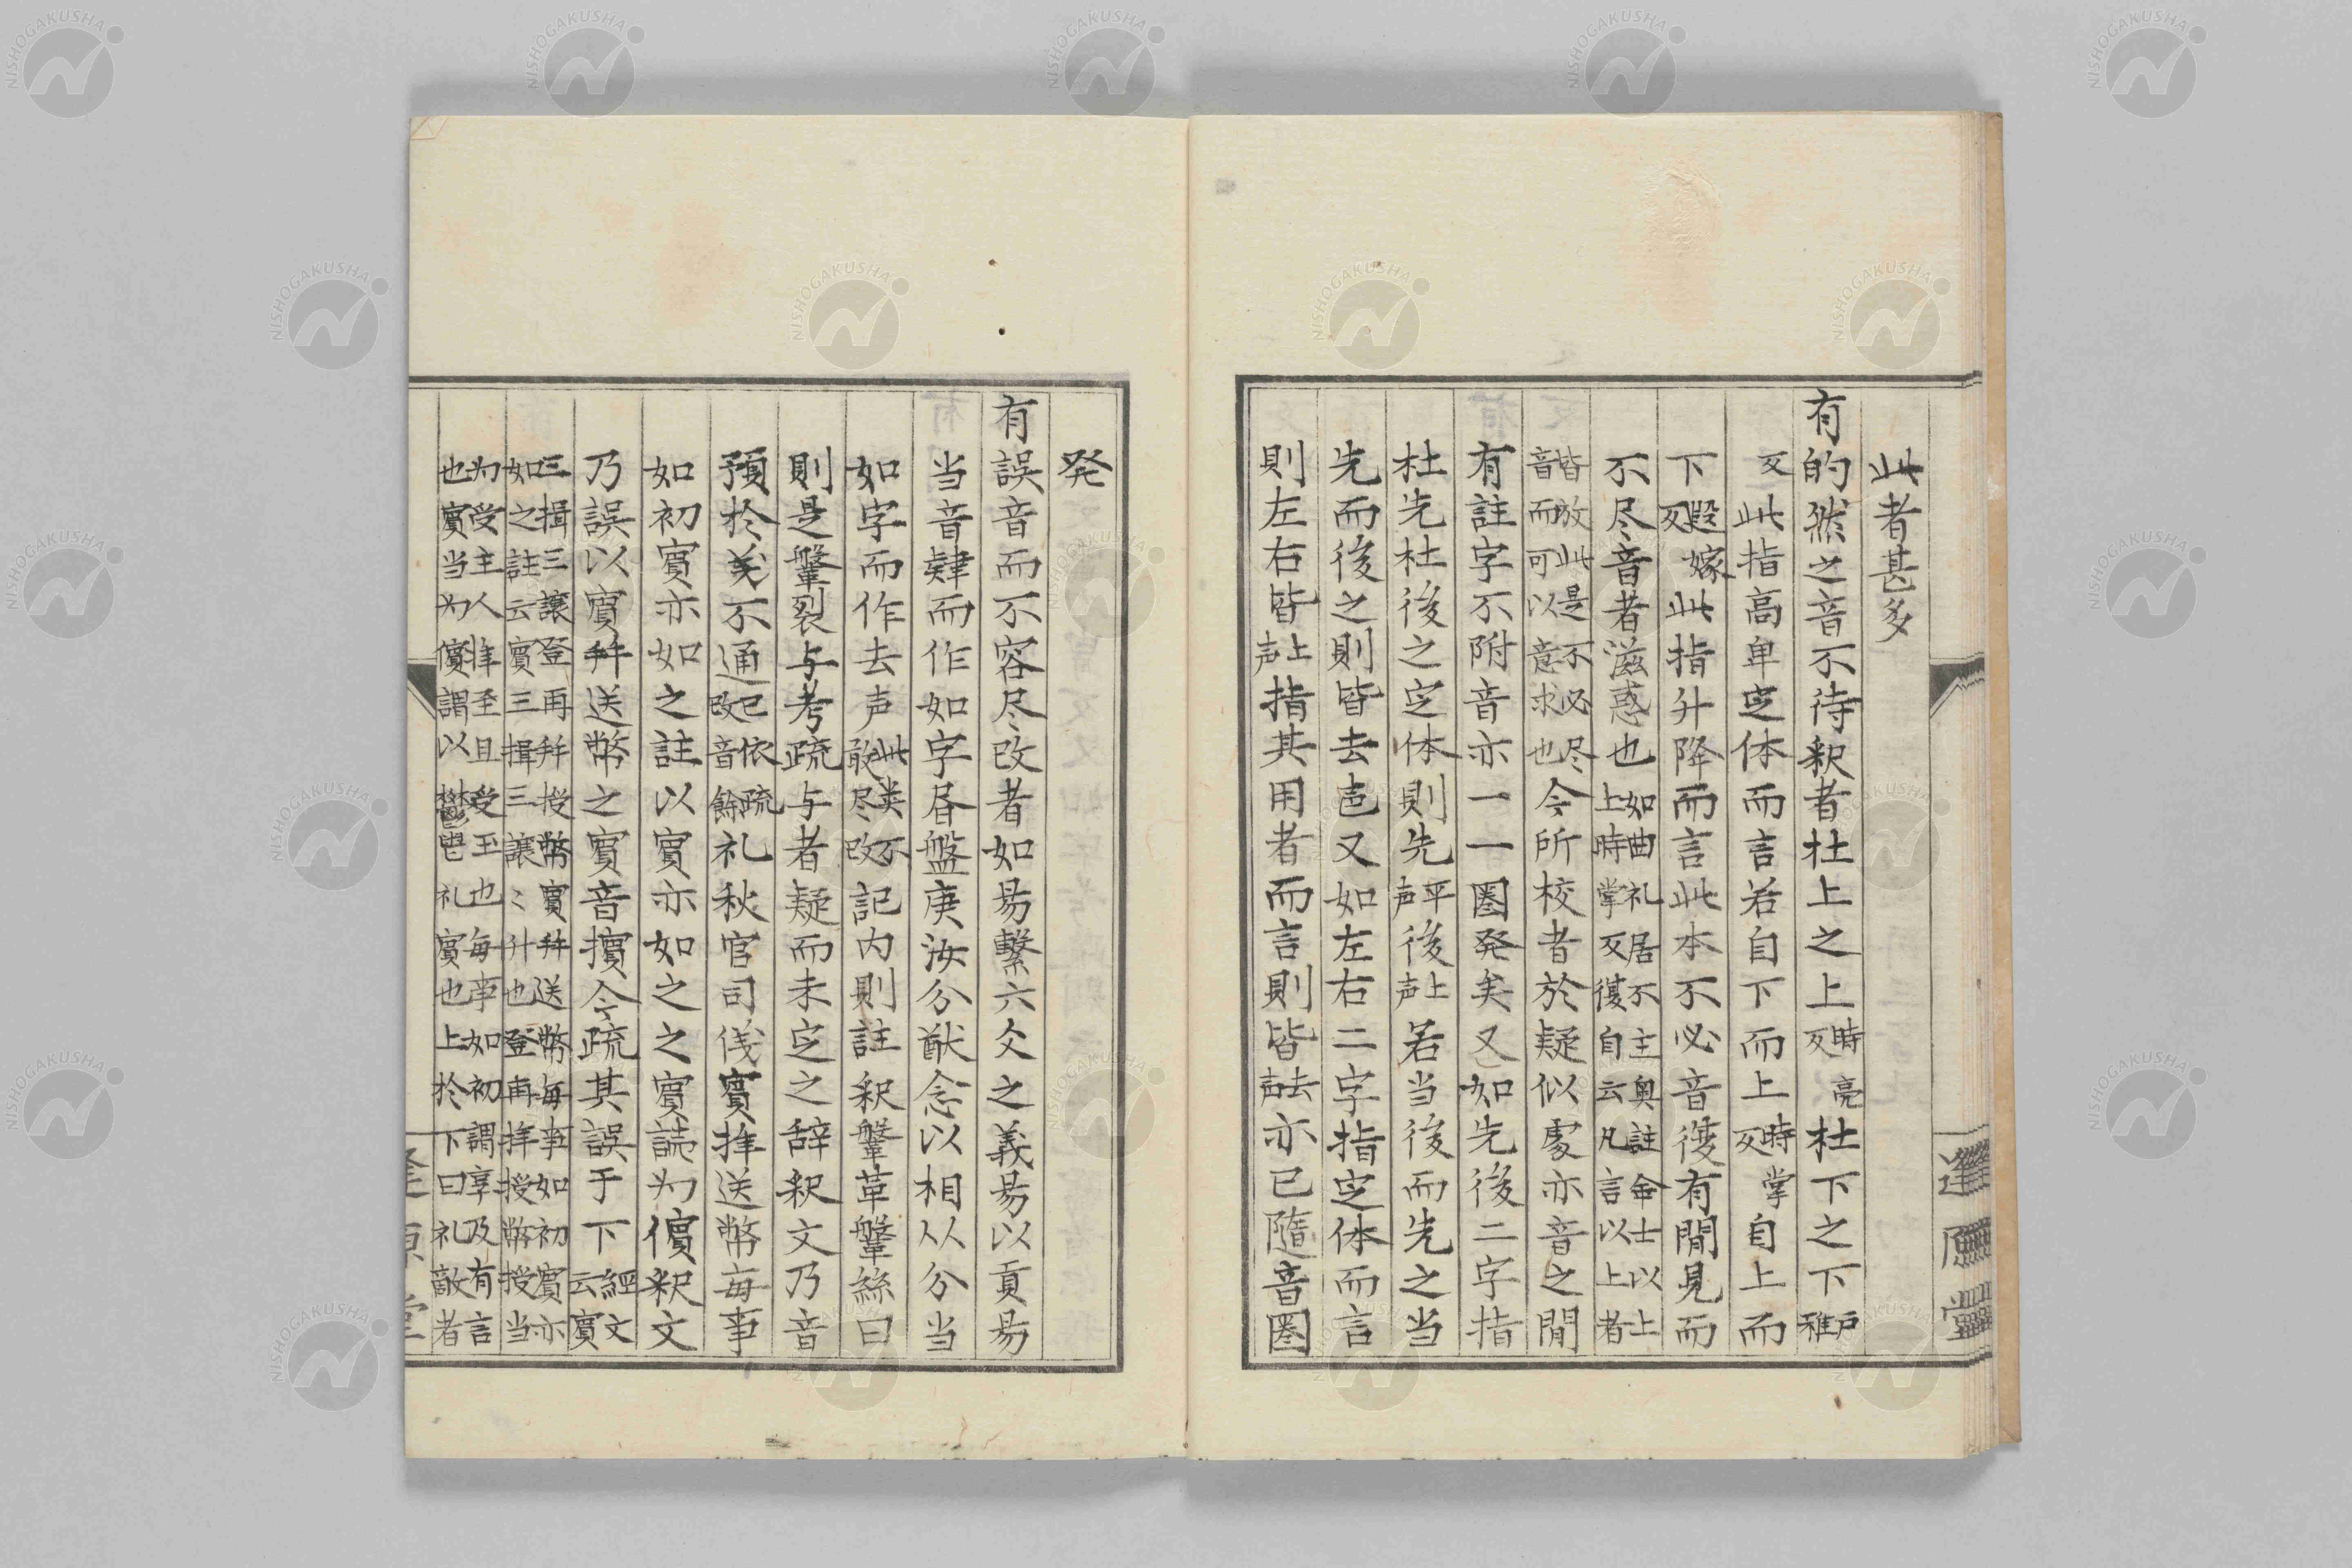 此者甚多
有的然之音不待釈者杜上之上時亮反杜下之下戸稚
反此指高卑定体而言若自下而上時掌反自上而
下遐嫁反此指升降而言此本不必音後有閒見而
不尽音者滋惑也如曲礼居不主奥註命士以上上時掌反後自云凡言以上者
皆放此是不必尽音而可以意求也今所校者於疑似処亦音之閒
有註字不附音亦一一圏発矣又如先後二字指
杜先杜後之定体則先平声後上声若当後而先之当
先而後之則皆去声又如左右二字指定体而言
則左右皆上声指其用者而言則皆去声亦已隨音圏
逢原堂
発
有誤音而不容尽改者如易繫六爻之義易以貢易
当音肄而作如字昏盤庚汝分猷念以相从分当
如字而作去声此类不敢尽改記内則註釈鞶革鞶絲曰
則是鞶裂与考疏与者疑而未定之辞釈文乃音
預於義不通已依疏改音餘礼秋官司儀賓拝送幣毎事
如初賓亦如之註以賓亦如之之賓読為儐釈文
乃誤以賓拜送幣之賓音擯今疏其誤于下経文云賓
三揖三譲登再拜授幣賓拜送幣毎事如初賓亦
如之註云賓三揖三譲〻升也登再拝授幣授当
為受主人拝至且受玉也毎事如初謂享及有言
也賓当为儐謂以鬱鬯礼賓也上於下曰礼敵者
逢原堂
NISHOGAKUSHA